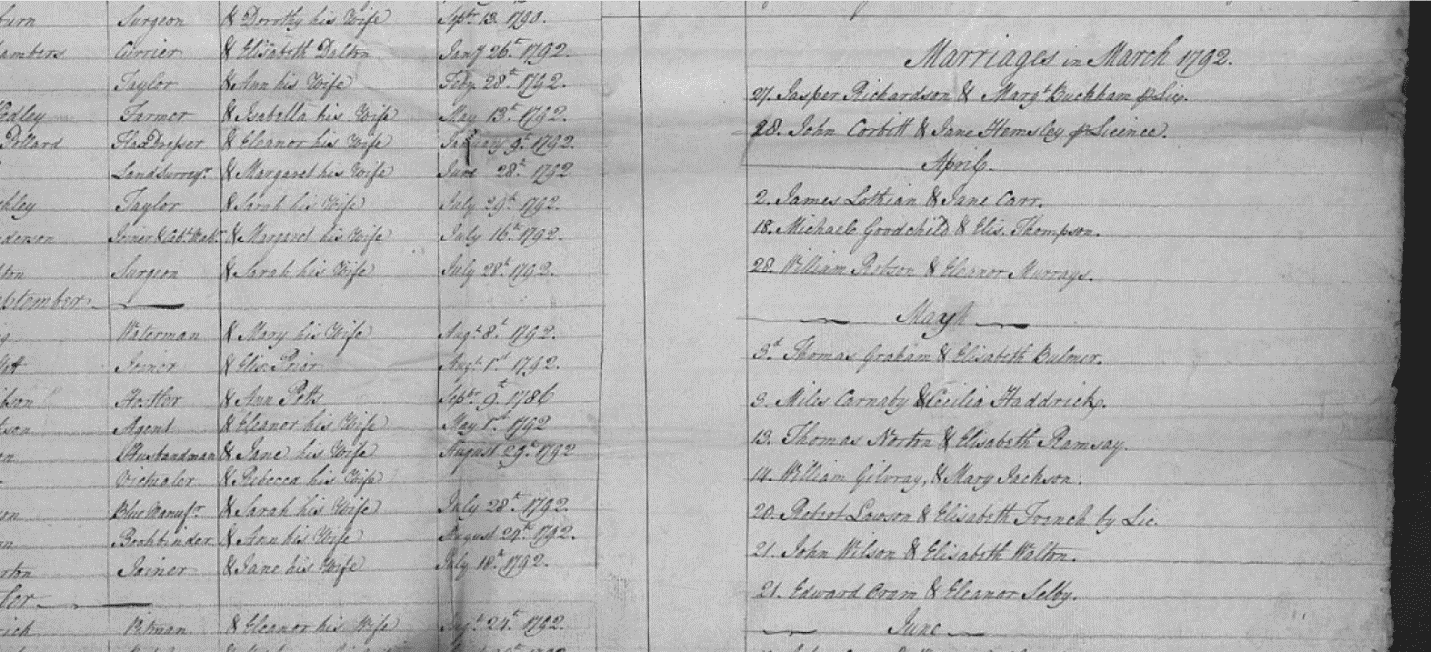 burn Surgeon & Dorothy his Wife Septr. 13. 1790.
ambers Currier & Elisabeth Dalton Jany 26t. 1792.
Taylor & Ann his Wife Feby 28t. 1792.
Hedley Farmer & Isabella his Wife May 13t. 1792.
Pollard Flax Dresser & Eleanor his Wife January 9t. 1792.
Land Surveyr. & Margaret his Wife June 28t. 1792
chley Taylor & Sarah his Wife July 29t. 1792.
derson Joiner & Cabt. Makr. & Margaret his Wife July 16t. 1792.
ton Surgeon & Sarah his Wife July 28t. 1792.
eptember
g Waterman & Mary his Wife Augt. 8t. 1792.
tt Joiner & Elis. Prior Augt. 1st 1792.
ibson Hostler & Ann Potts Septr. 9t. 1786
tson Agent & Eleanor his Wife May 1st 1792
on Husbandman & Jane his Wife August 29t. 1792
Victualer & Rebecca his Wife
on Blue Manufr. & Sarah his Wife July 28t. 1792.
on Bookbinder & Ann his Wife August 27t. 1792.
rton Joiner & Jane his Wife July 18t. 1792.
ber
rich Pitman & Eleanor his Wife Augt. 24t. 1792.
Marriages in March 1792.
27. Jasper Richardson & Margt. Buckham pr Lic.
28. John Corbitt & Jane Hemsley pr Licence.
April.
2. James Lothian & Jane Carr.
18. Michael Goodchild & Elis. Thompson.
28. William Robson & Eleanor Murrays.
May
3d. Thomas Graham & Elisabeth Bulmer.
3. Miles Carnaby & Cecilia Haddrick.
13. Thomas Norton & Elisabeth Ramsay.
14. William Gilvray, & Mary Jackson.
20. Robert Lawson & Elisabeth French by Lic.
21. John Wilson & Elisabeth Walton.
21. Edward Oram & Eleanor Selby.
June